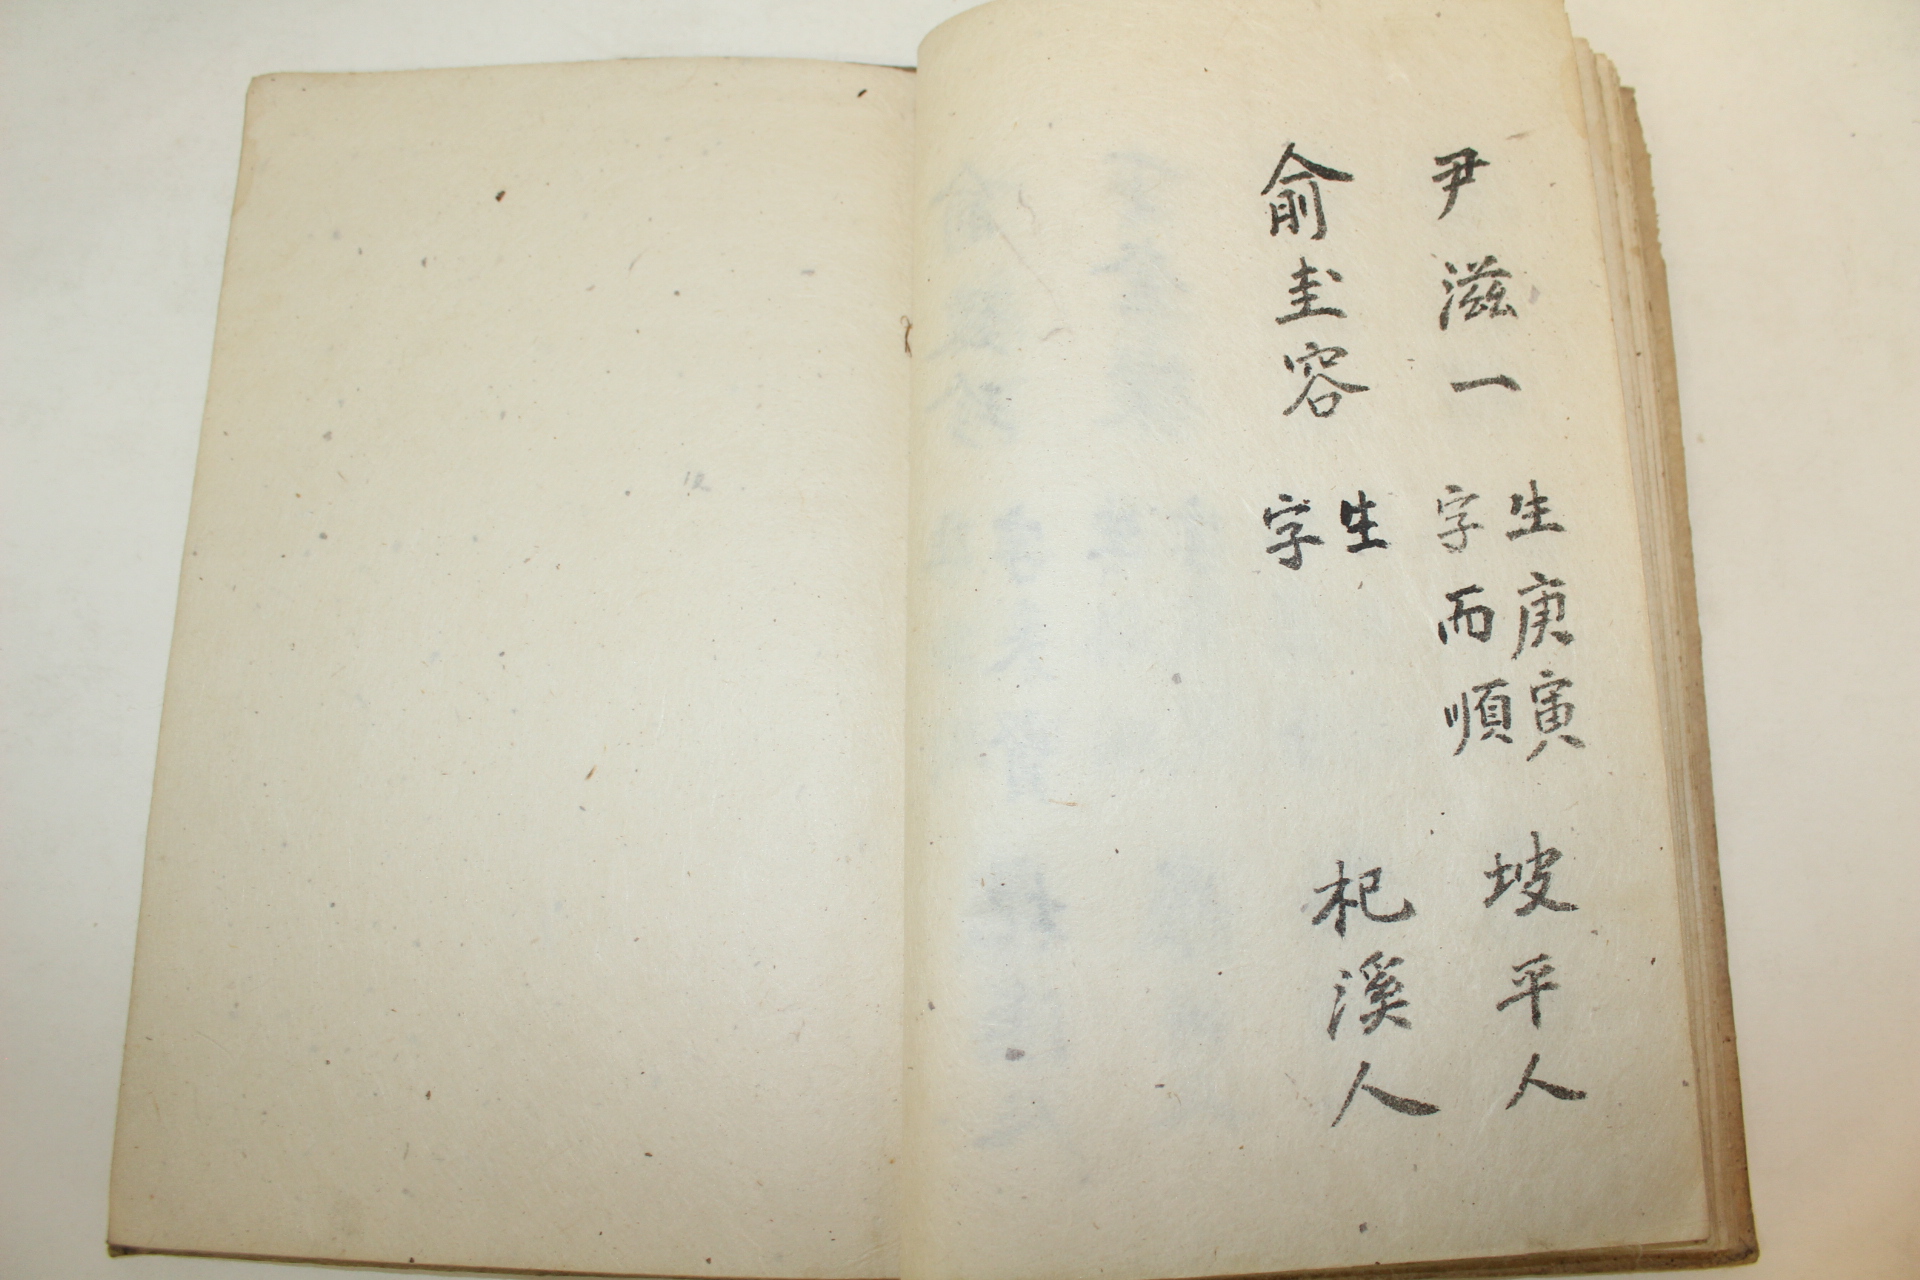 尹滋一 生庚寅 字而順 坡平人
俞圭容 生 字 杞溪人